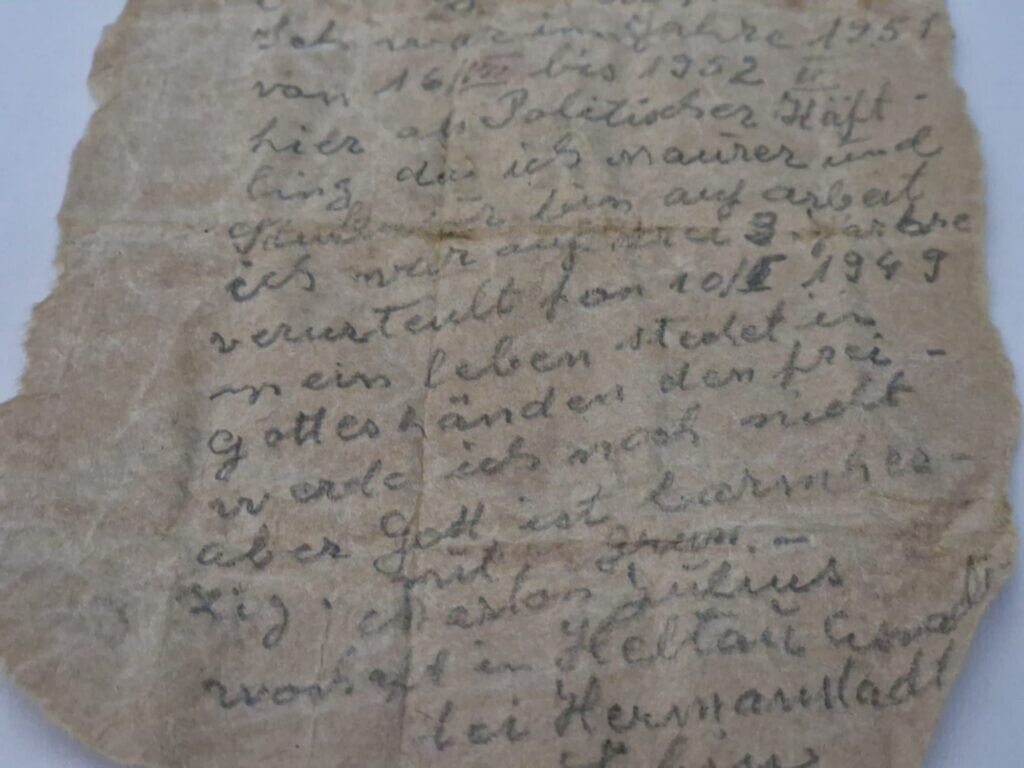 Ich war im Jahre 1951
von 16/VIII bis 1952 II
hier als Politischer Häft-
ling da ich maurer und
bin auf arbeit
ich war auf drei 3 jarhre
verurteult fon 10/I 1949
mein leben stehet in
Gottes händen den frei-
werde ich noch nicht
aber Gott ist barmher-
zig. mit grum. -
Julius
wohaft in Heltau
bei Hermanstadt